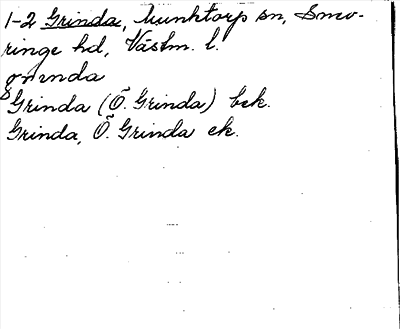 1-2 Grinda, Munktorp sn, Snev-
ringe hd, Västm. l.
Grinda (Ö. Grinda) bek.
Grinda, Ö. Grinda ek.